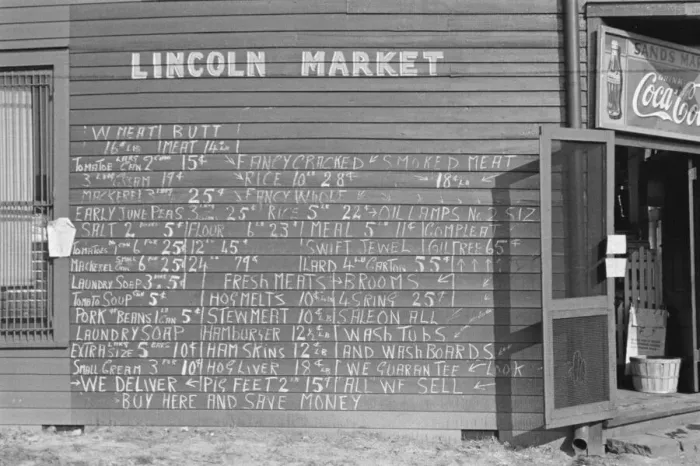 LINCOLN MARKET
SANDS MAR
DRINK
Coca-Col
W MEAT BUTT
16¢ LB MEAT 14¢ LB
TOMATOE LARG CAN 2 15¢ FANCY CRACKED SMOKED MEAT
3 CREAM 19¢ RICE 10 LB 28¢ 18¢ LB
MACKEREL 3 25¢ FANCY WHOLE
EARLY JUNE PEAS 3 25¢ RICE 5 LB 22¢ OIL LAMPS No 2 SIZ
SALT 2 5¢ FLOUR 6 LB 23¢ MEAL 5 LB 11¢ COMPLEAT
TOMATOES 6 FOR 25¢ 12 LB 45¢ SWIFT JEWEL OIL FREE 65¢
MACKEREL SMALL CANS 6 FOR 25¢ 24 LB 79¢ LARD 4 LB CARTON 55¢
LAUNDRY SOAP 3 5¢ FRESH MEATS BROOMS
TOMATO SOUP CAN 5¢ HOG MELTS 10¢ LB 4 STRING 25¢
PORK & BEANS 1 LB CAN 5¢ STEW MEAT 10¢ LB SALE ON ALL
LAUNDRY SOAP HAMBURGER 12½¢ LB WASH TUBS
EXTRA LARG SIZE 5 BARS 10¢ HAM SKINS 12½ LB AND WASH BOARDS
SMALL CREAM 3 FOR 10¢ HOG LIVER 18¢ LB WE GUARANTEE LOOK
WE DELIVER PIG FEET 2 LB 15¢ ALL WE SELL
BUY HERE AND SAVE MONEY